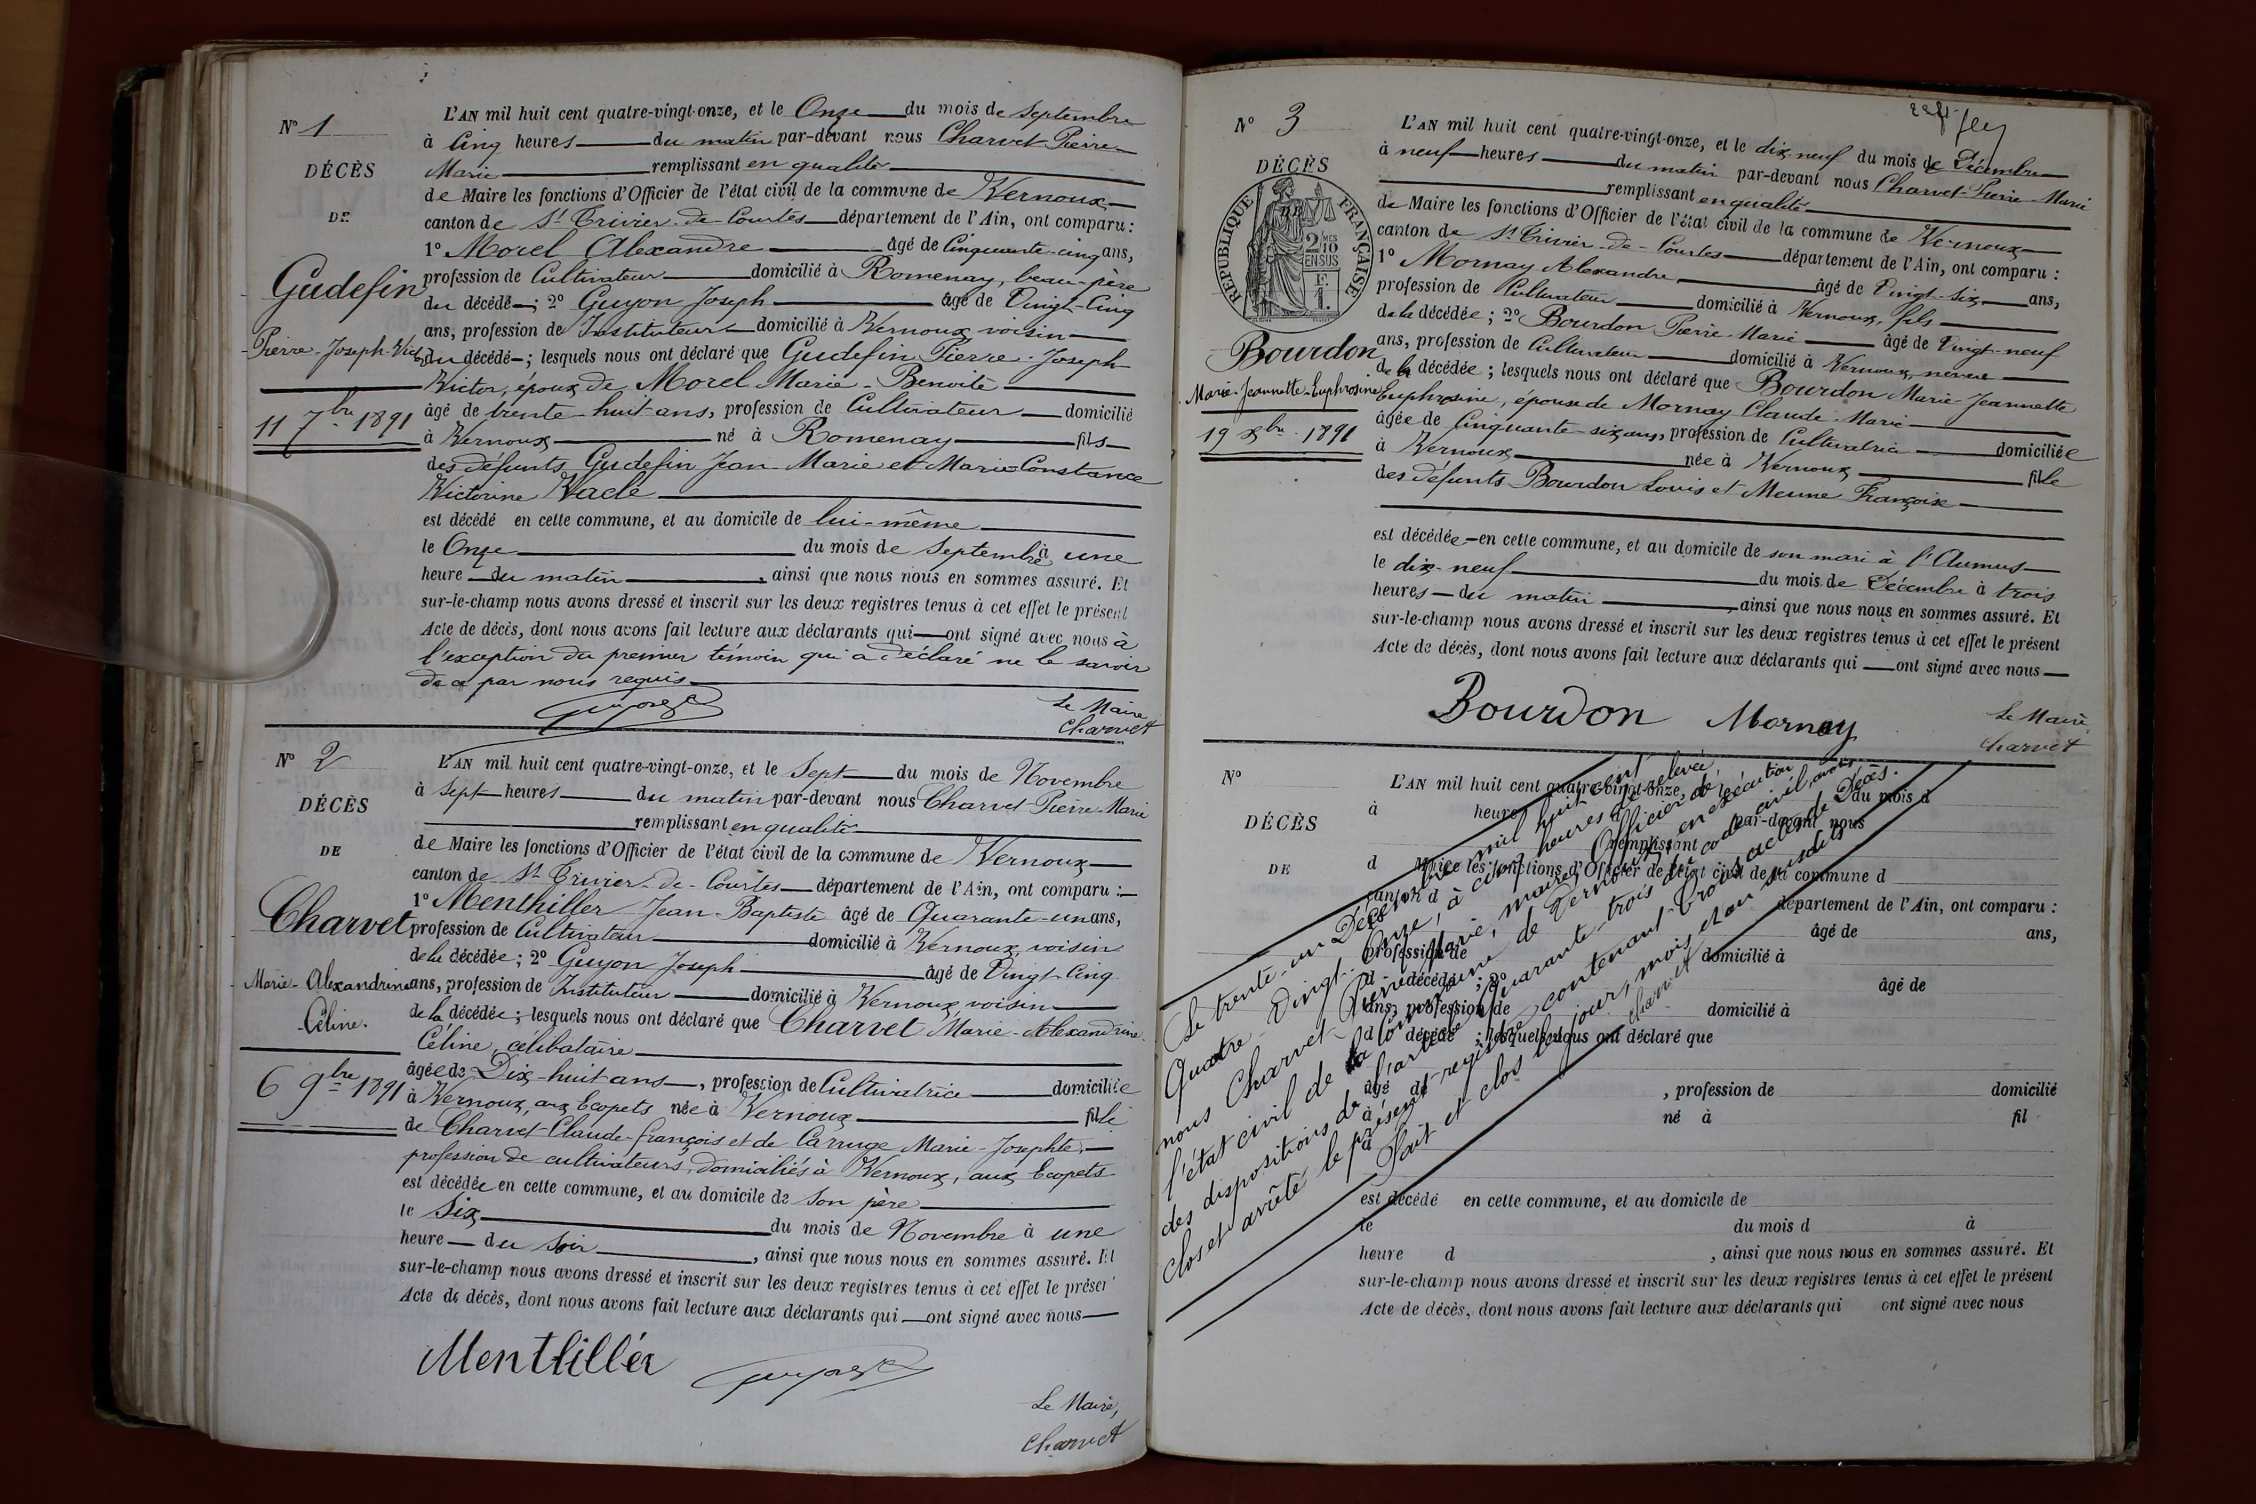 N° 1
DÉCÈS
DE
Gudefin
Pierre-Joseph-Victor
11 7bre 1891
L'AN mil huit cent quatre-vingt-onze, et le Onze du mois de Septembre
à Cinq heures du matin par-devant nous Charvet Pierre
Marie remplissant en qualité
de Maire les fonctions d'Officier de l'état civil de la commune de Vernoux
canton de St Trivier-de-Courtes département de l'Ain, ont comparu :
1° Morel Alexandre âgé de Cinquante-cinq ans,
profession de Cultivateur domicilié à Romenay, beau-père
du décédé ; 2° Guyon Joseph âgé de Vingt-Cinq
ans, profession de Instituteur domicilié à Vernoux voisin
du décédé ; lesquels nous ont déclaré que Gudefin Pierre-Joseph
Victor, époux de Morel Marie-Benoite
âgé de trente-huit ans, profession de Cultivateur domicilié
à Vernoux né à Romenay fils
des défunts Gudefin Jean-Marie et Marie Constance
Victorine Vacle
est décédé en cette commune, et au domicile de lui-même
le Onze du mois de Septembre à une
heure du matin, ainsi que nous nous en sommes assuré. Et
sur-le-champ nous avons dressé et inscrit sur les deux registres tenus à cet effet le présent
Acte de décès, dont nous avons fait lecture aux déclarants qui ont signé avec nous à
l'exception du premier témoin qui a déclaré ne le savoir
de ce par nous requis
Guyon J
Le Maire
Charvet
N° 2
DÉCÈS
DE
Charvet
Marie-Alexandrine
Céline.
6 9bre 1891
L'AN mil huit cent quatre-vingt-onze, et le Sept du mois de Novembre
à Sept heures du matin par-devant nous Charvet Pierre-Marie
remplissant en qualité
de Maire les fonctions d'Officier de l'état civil de la commune de Vernoux
canton de St Trivier-de-Courtes département de l'Ain, ont comparu :
1° Menthiller Jean-Baptiste âgé de Quarante-un ans,
profession de Cultivateur domicilié à Vernoux, voisin
de la décédée ; 2° Guyon Joseph âgé de Vingt-Cinq
ans, profession de Instituteur domicilié à Vernoux, voisin
de la décédée ; lesquels nous ont déclaré que Charvet Marie-Alexandrine
Céline, célibataire
âgée de Dix-huit ans, profession de Cultivatrice domiciliée
à Vernoux, aux Ecopets née à Vernoux fille
de Charvet Claude-François et de Carruge Marie-Josephte,
profession de cultivateurs, domiciliés à Vernoux, aux Ecopets
est décédée en cette commune, et au domicile de son père
le Six du mois de Novembre à une
heure du soir, ainsi que nous nous en sommes assuré. Et
sur-le-champ nous avons dressé et inscrit sur les deux registres tenus à cet effet le présent
Acte de décès, dont nous avons fait lecture aux déclarants qui ont signé avec nous
Menthillér
Guyon J
Le Maire,
Charvet
N° 3
DÉCÈS
RÉPUBLIQUE FRANÇAISE
2 MES
10
EN SUS
F.
1.
Bourdon
Marie-Jeannette-Euphrosine
19 Xbre 1891
L'AN mil huit cent quatre-vingt-onze, et le dix neuf du mois de Décembre
à neuf heures du matin par-devant nous Charvet Pierre-Marie
remplissant en qualité
de Maire les fonctions d'Officier de l'état civil de la commune de Vernoux
canton de St Trivier-de-Courtes département de l'Ain, ont comparu :
1° Mornay Alexandre âgé de Vingt-six ans,
profession de Cultivateur domicilié à Vernoux, fils
de la décédée ; 2° Bourdon Pierre-Marie âgé de Vingt-neuf
ans, profession de Cultivateur domicilié à Vernoux, neveu
de la décédée ; lesquels nous ont déclaré que Bourdon Marie-Jeannette
Euphrosine, épouse de Mornay Claude-Marie
âgée de Cinquante-six ans, profession de Cultivatrice domiciliée
à Vernoux née à Vernoux fille
des défunts Bourdon Louis et Meune Françoise
est décédée en cette commune, et au domicile de son mari à l'Aumus
le dix-neuf du mois de Décembre à trois
heures du matin, ainsi que nous nous en sommes assuré. Et
sur-le-champ nous avons dressé et inscrit sur les deux registres tenus à cet effet le présent
Acte de décès, dont nous avons fait lecture aux déclarants qui ont signé avec nous
Bourdon Mornay
Le Maire
Charvet
N°
DÉCÈS
DE
L'AN mil huit cent quatre-vingt-onze, et le du mois d
à heure par-devant nous
remplissant
d Maire les fonctions d'Officier de l'état civil de la commune d
canton d département de l'Ain, ont comparu :
âgé de ans,
profession de domicilié à
d décédé ; 2° âgé de
ans, profession de domicilié à
d décédé ; lesquels nous ont déclaré que
âgé d , profession de domicilié
à né à fil
d
est décédé en cette commune, et au domicile de
le du mois d à
heure d , ainsi que nous nous en sommes assuré. Et
sur-le-champ nous avons dressé et inscrit sur les deux registres tenus à cet effet le présent
Acte de décès, dont nous avons fait lecture aux déclarants qui ont signé avec nous
Le trente-un Décembre mil huit cent
Quatre Vingt-Onze, à cinq heures de relevée
nous Charvet Pierre Marie, maire, Officier de
l'état civil de la Commune de Vernoux, en exécution
des dispositions de l'article quarante trois du code civil, avons
clos et arrêté le présent registre contenant trois actes de Décès.
Fait et clos les jour, mois et an susdits
Charvet